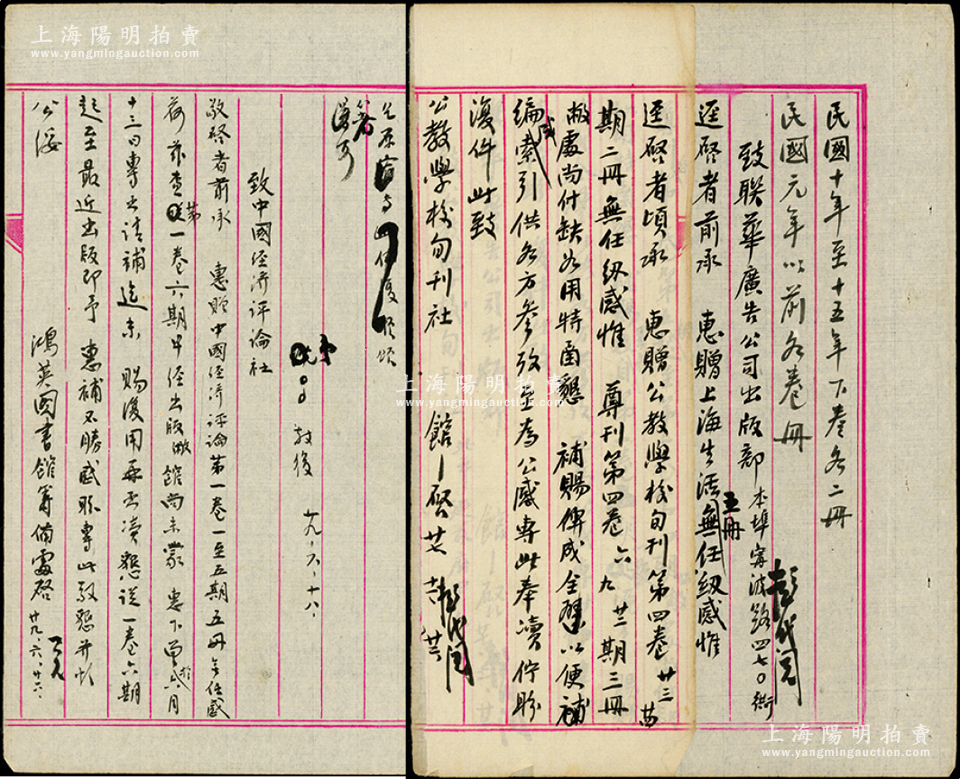 上海陽明拍賣
www.yangmingauction.com
民國十年至十五年下卷各二冊
民國元年以前各卷冊
致聯華廣告公司出版部 本埠寧波路四七〇街
逕啓者前承 惠贈上海生活五冊無任紉感惟
彭代同
逕啓者頃承 惠贈公教學校旬刊第四卷廿三
期二冊無任紉感惟 尊刊第四卷六 九 廿二期三冊
敝處尚付缺如用特函懇 補賜俾成全璧以便補
編或索引供各方參攷至爲公感專此奉瀆佇盼
復件此致
公教學校旬刊社 館 啓
上海陽明拍賣
www.yangmingauction.com
致中國經濟評論社
敬啓者前承 惠贈中國經濟評論第一卷一至五期五冊無任感
荷茲查第一卷六期早經出版敝館尚未蒙 惠下曾於六月
十三日專函請補迄未 賜復用再函瀆懇從一卷六期
起至最近出版即予 惠補不勝感盼專此敬懇并頌
公綏 鴻英圖書館籌備處啓 廿九、六、廿六、
上海陽明拍賣
www.yangmingauction.com